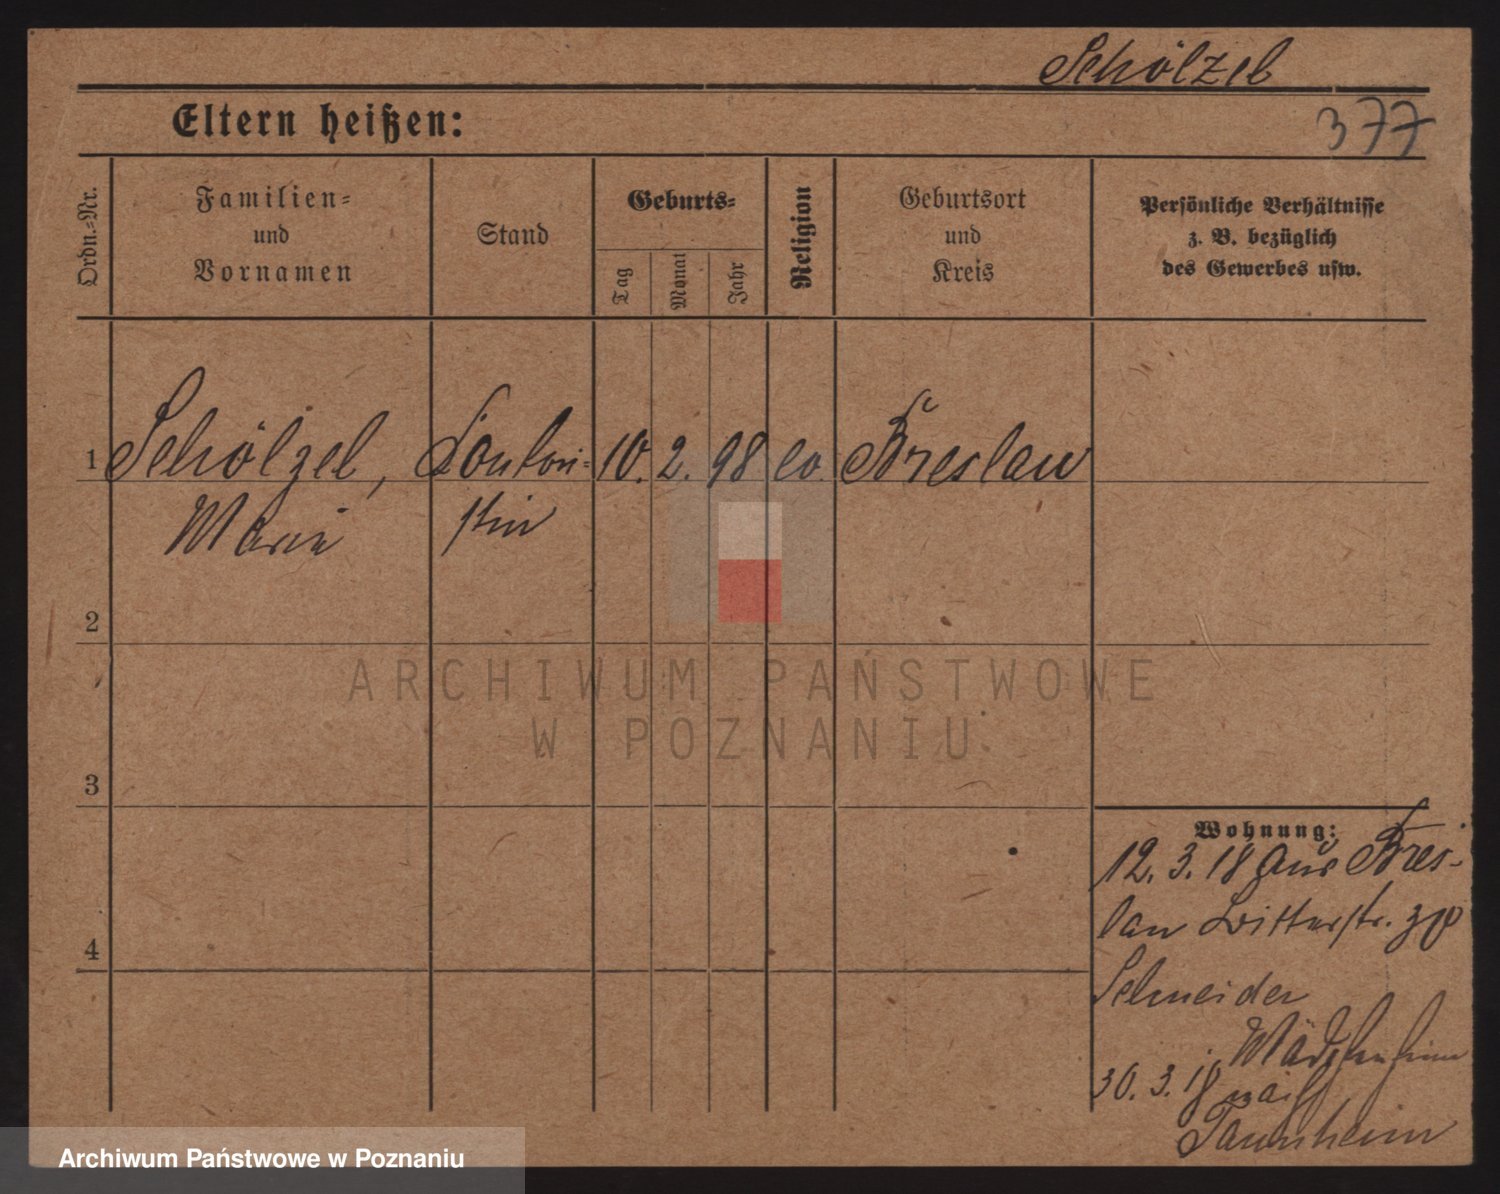 Schölzel
Eltern heißen:
377
Ordn.-Nr.
Familien-
und
Vornamen
Stand
Geburts-
Tag
Monat
Jahr
Religion
Geburtsort
und
Kreis
Persönliche Verhältnisse
z. B. bezüglich
des Gewerbes usw.
1 Schölzel, Kontori- 10. 2. 98 ev. Breslau
Marie stin
2
3
4
Wohnung:
12. 3. 18 aus Bres-
lau
Schneider
Mädchenheim
30. 3. 18 nach
Tannheim
ARCHIWUM PAŃSTWOWE
W POZNANIU
Archiwum Państwowe w Poznaniu